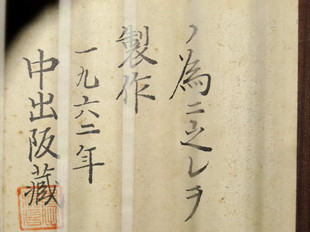 ノ為ニ之レヲ
製作
一九六二年
中出阪藏